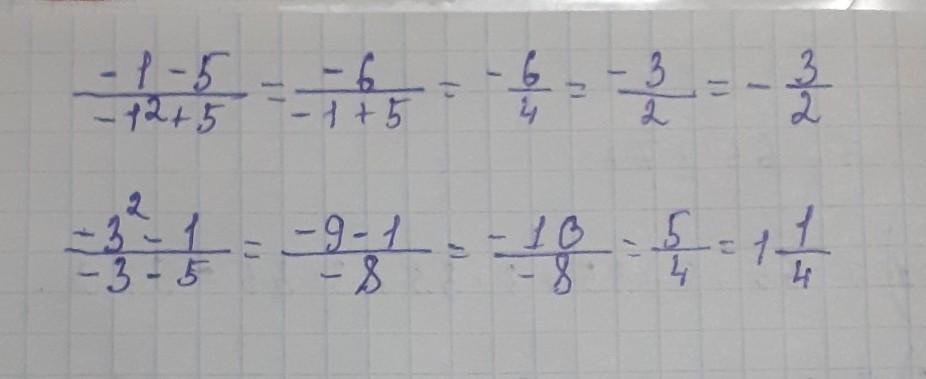 \frac{-1-5}{-1^2+5} = \frac{-6}{-1+5} = \frac{-6}{4} = \frac{-3}{2} = -\frac{3}{2}
\frac{-3^2-1}{-3-5} = \frac{-9-1}{-8} = \frac{-10}{-8} = \frac{5}{4} = 1\frac{1}{4}